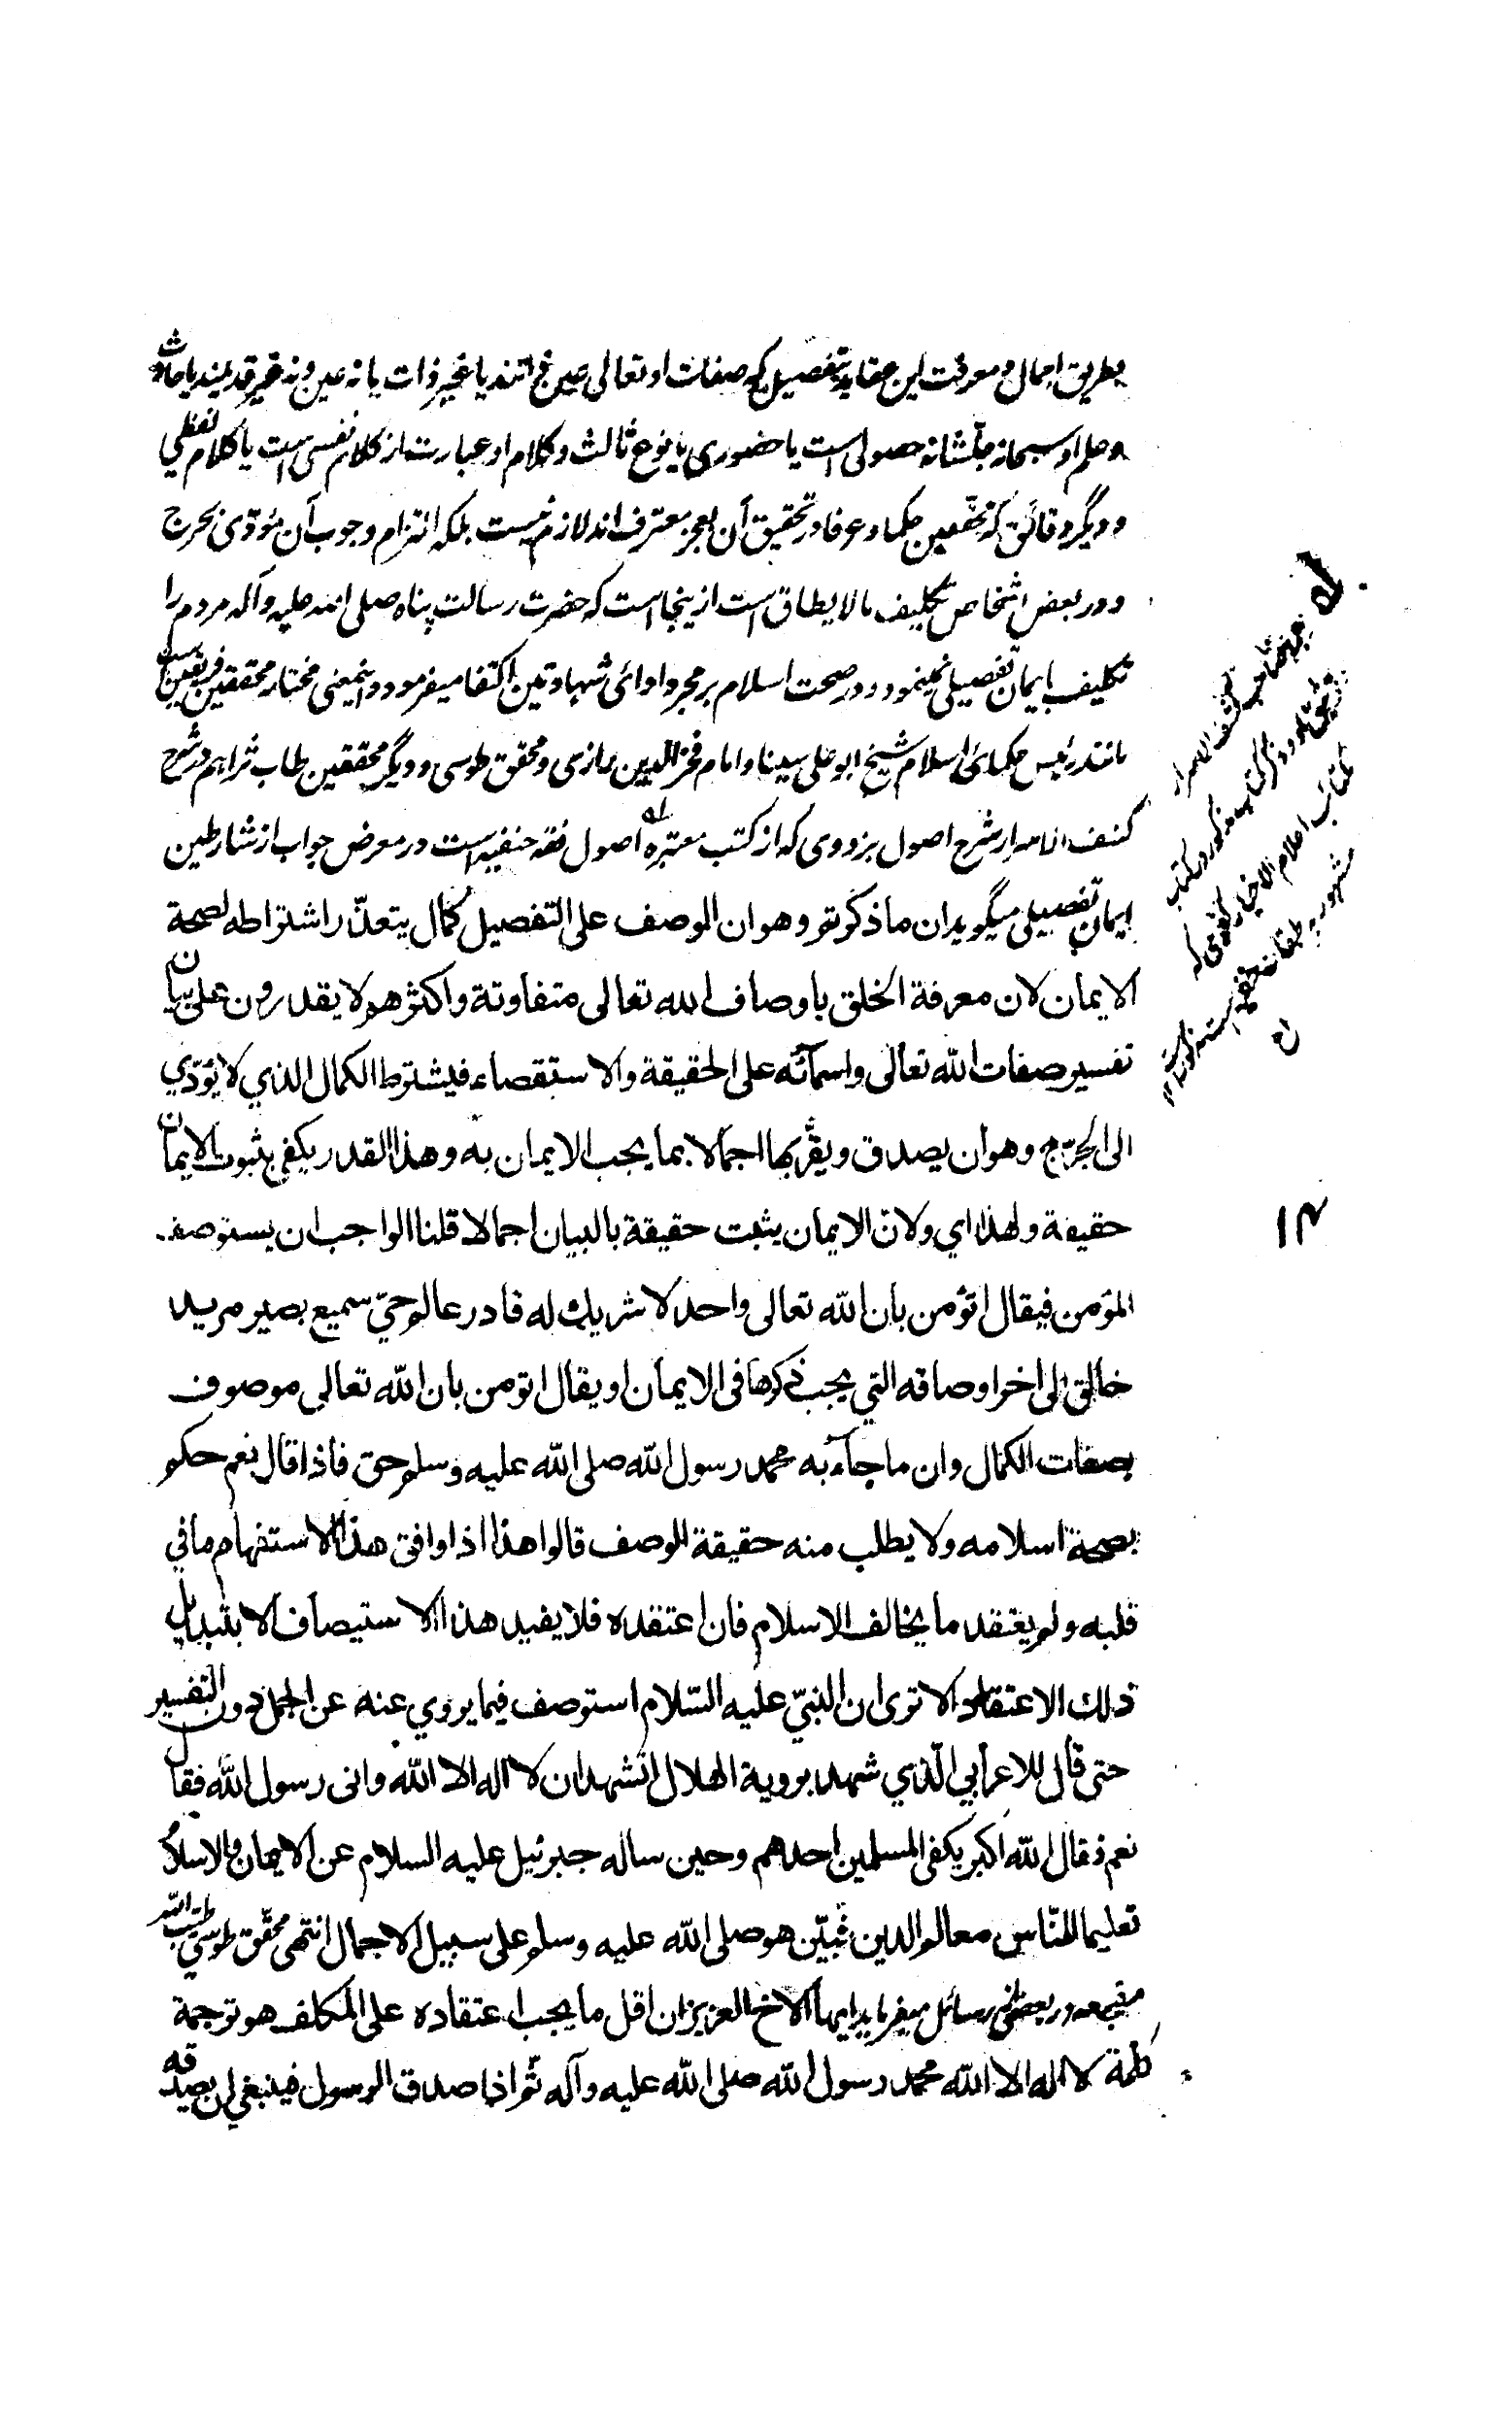 بطریق اجمال و معرفت این عقاید بتفصیل که صفات او تعالی عین ذاتند یا غیر ذات یا نه عین و نه غیر قدیمند یا حادث
و علم او سبحانه جلشانه حصولی است یا حضوری یا نوع ثالث و کلام او عبارت از کلام نفسی است یا کلام لفظی
و دیگر دقائق که محققین حکما و عرفا در تحقیق آن بعجز معترف اند لازم نیست بلکه التزام وجوب آن مؤدی بحرج
و در بعض اشخاص تکلیف مالا یطاق است ازینجا است که حضرت رسالت پناه صلی الله علیه و آله مردم را
تکلیف بایمان تفصیلی نمینمود و در صحت اسلام بر مجرد ادائی شهادتین اکتفا میفرمود و اینمعنی مختار محققین فریقین است
مانند رئیس حکمائی اسلام شیخ ابو علی سینا و امام فخر الدین رازی و محقق طوسی و دیگر محققین طاب ثراهم در شرح
کشف الاسرار شرح اصول بزدوی که از کتب معتبره له اصول فقه حنفیه است در معرض جواب از شارطین
ایمان تفصیلی میگوید ان ما ذکرتم و هو ان الوصف علی التفصیل کمال یتعذّر اشتراطه لصحة
الایمان لان معرفة الخلق باوصاف الله تعالی متفاوتة و اکثرهم لا یقدرون علی بیان
تفسیر صفات الله تعالی و اسمآئه علی الحقیقة و الاستقصاء فیشترط الکمال الذي لا یؤدّي
الی الحرج و هو ان یصدق و یقرّ بها اجمالا بما یجب الایمان به و هذا القدر یکفی بثبوت الایمان
حقیقة و لهذا اي و لان الایمان یثبت حقیقة بالبیان اجمالا قلنا الواجب ان یستوصف
المؤمن فیقال اتؤمن بان الله تعالی واحد لا شریك له قادر عالم حيّ سمیع بصیر مرید
خالق الی اخر اوصافه التي یجب ذکرها فی الایمان او یقال اتومن بان الله تعالی موصوف
بصفات الکمال و ان ما جآء به محمد رسول الله صلی الله علیه و سلم حق فاذا قال نعم حکم
بصحة اسلامه و لا یطلب منه حقیقة الوصف قالوا هذا اذا وافق هذا الاستفهام ما في
قلبه و لم یعتقد ما یخالف الاسلام فان اعتقده فلا یفید هذا الاستیصاف الا بتبدیل
ذلك الاعتقاد الا تری ان النبيّ علیه السّلام استوصف فیما یروي عنه عن الجمل دون التفسیر
حتی قال للاعرابي الّذي شهد برویة الهلال اتشهد ان لا اله الا الله و انی رسول الله فقال
نعم فقال الله اکبر یکفی المسلمین احدهم و حین ساله جبرئیل علیه السلام عن الایمان و الاسلام
تعلیما للنّاس معالم الدین فبیّن هو صلی الله علیه و سلم علی سبیل الاجمال انتهی محقّق طوسی طیب الله
مضجعه در بعضی رسائل میفرماید ایها الاخ العزیز ان اقل ما یجب اعتقاده علی المکلف هو ترجمة
کلمة لا اله الا الله محمد رسول الله صلی الله علیه و آله ثم اذا صدق الرسول فینبغي ان یصدقه
له
کشف الاسرار
کتاب مذکور در کتب
کتائب اعلام الاخیار کفوی که
مشهور به طبقات حنفیه است مذکور است ۱۲
۱۲